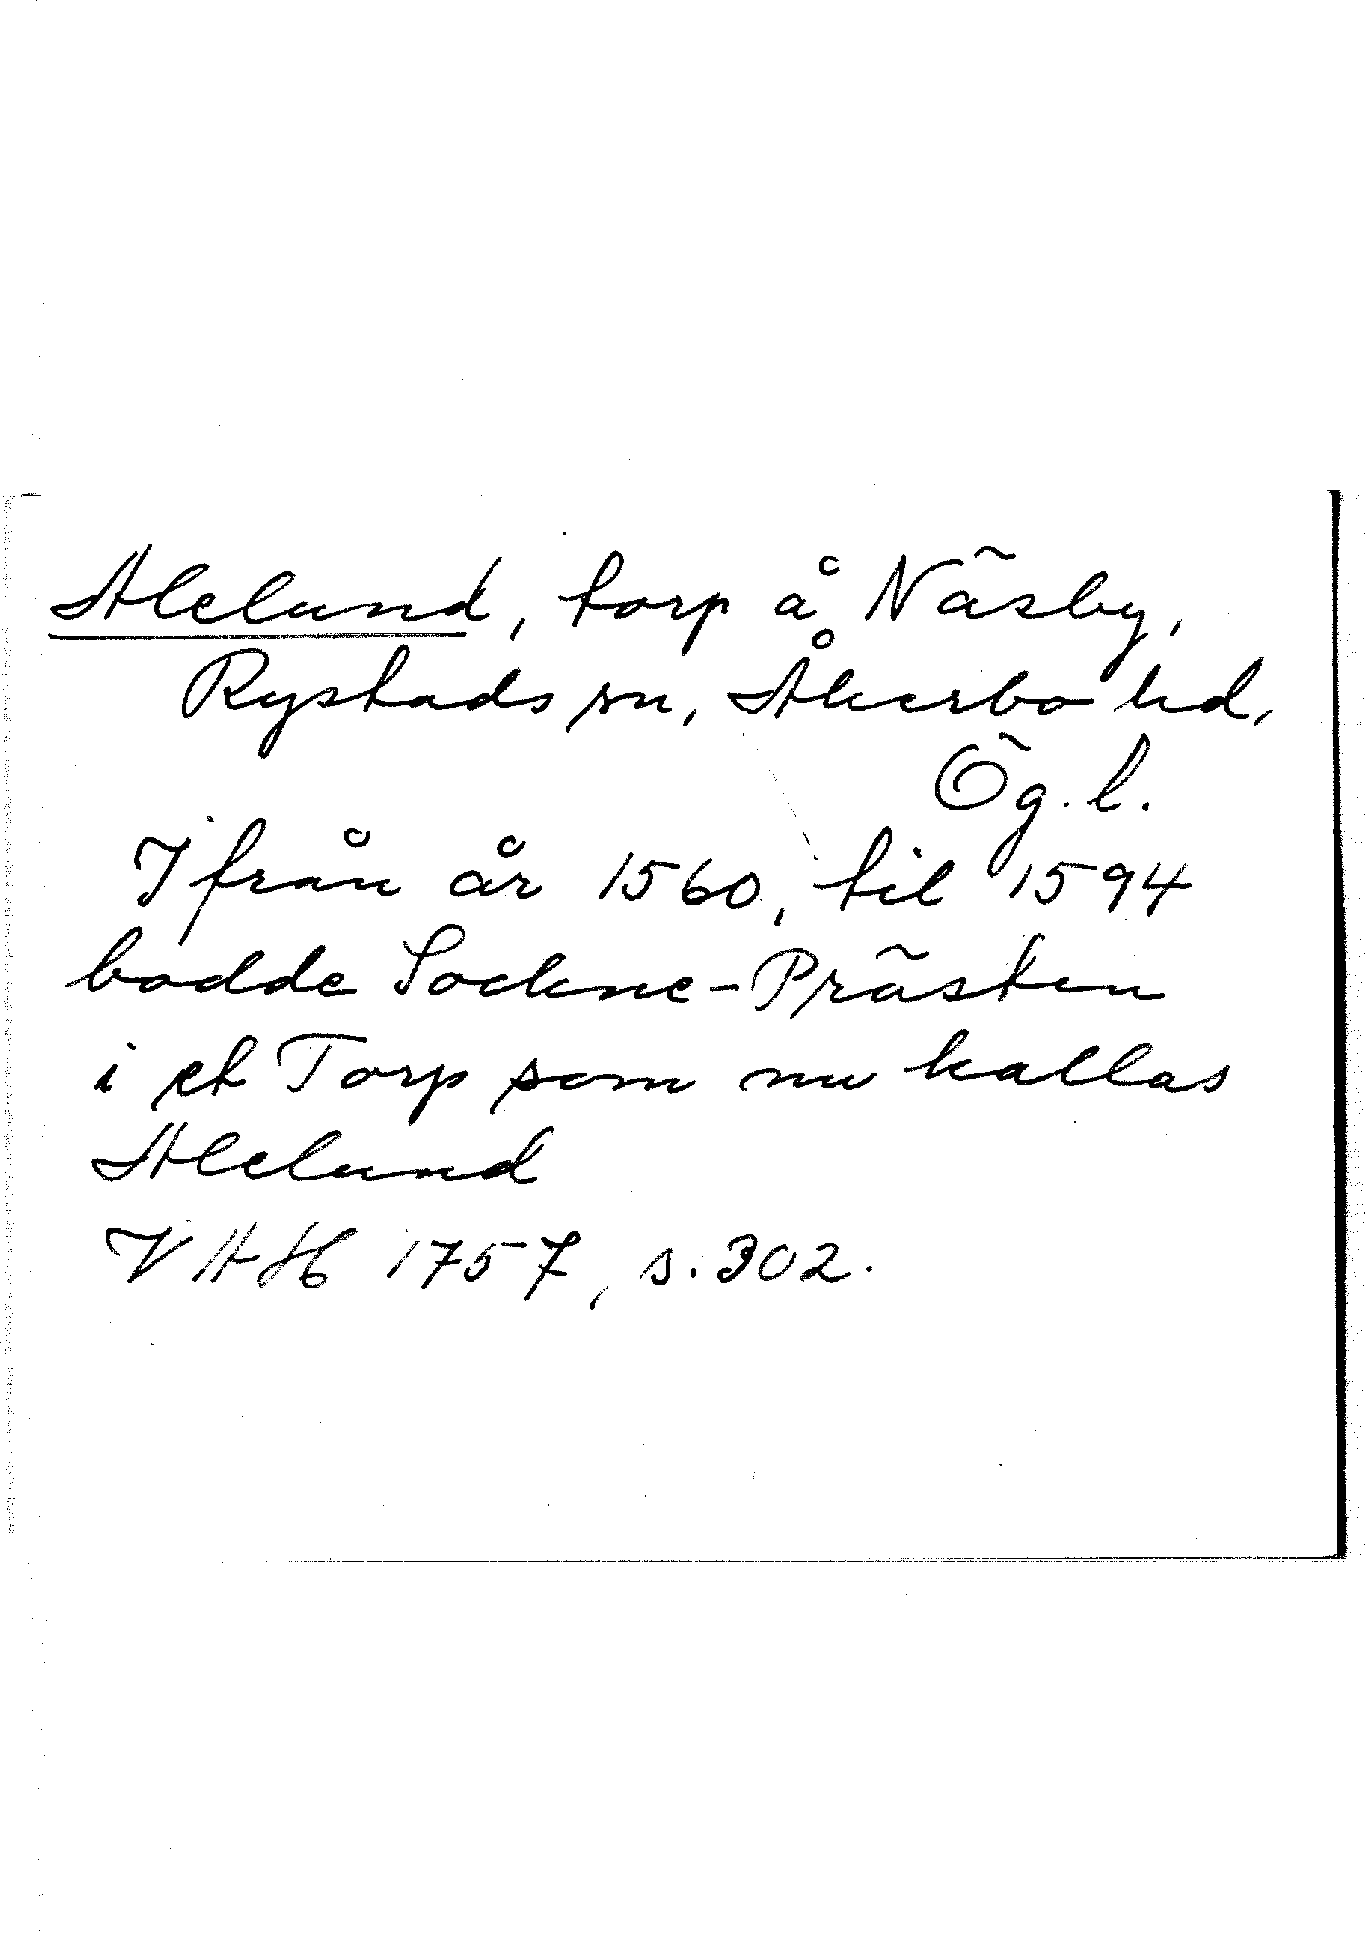 Alelund, torp å Näsby,
Rystads sn, Åkerbo hd,
Ög. l.
Ifrån år 1560, til 1594
bodde Sockne-Prästen
i et Torp som nu kallas
Alelund
VAH 1757, s. 302.